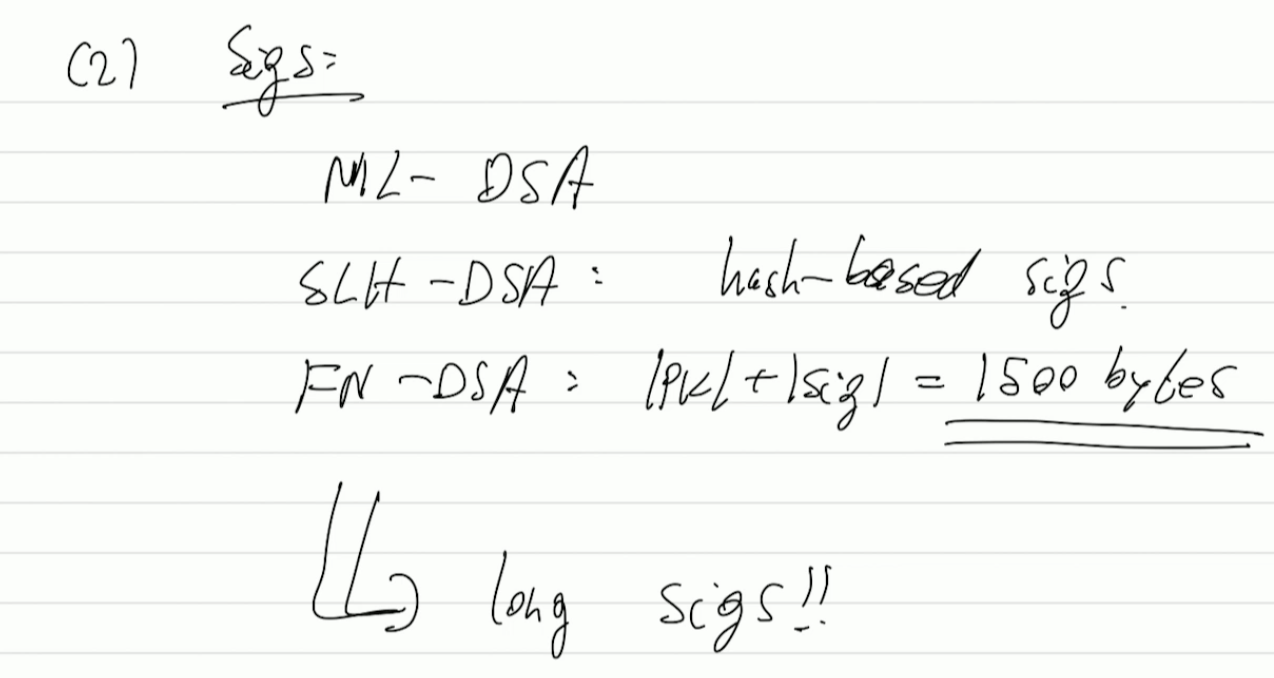 (2) Sigs:
ML-DSA
SLH-DSA: hash-based sigs.
FN-DSA: |PK|+|sig| = 1500 bytes
long sigs!!